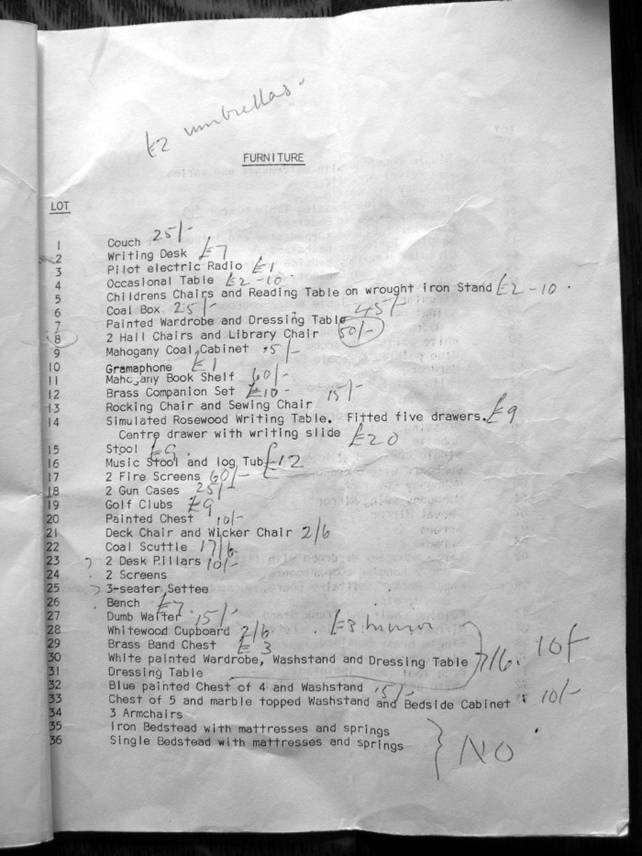 £2 umbrellas
FURNITURE
LOT
1 Couch 25/-
2 Writing Desk £7
3 Pilot electric Radio £1
4 Occasional Table £2-10.
5 Childrens Chairs and Reading Table on wrought iron Stand £2-10.
6 Coal Box 25/-
7 Painted Wardrobe and Dressing Table 45/-
8 2 Hall Chairs and Library Chair 50/-
9 Mahogany Coal Cabinet 5/-
10 Gramaphone £1
11 Mahogany Book Shelf 60/-
12 Brass Companion Set £10-
13 Rocking Chair and Sewing Chair 15/-
14 Simulated Rosewood Writing Table. Fitted five drawers. £9
Centre drawer with writing slide £20
15 Stool £9
16 Music Stool and log Tub £12
17 2 Fire Screens 60/-
18 2 Gun Cases 25/-
19 Golf Clubs £9
20 Painted Chest 10/-
21 Deck Chair and Wicker Chair 2/6
22 Coal Scuttle 17/6
23 2 Desk Pillars 10/-
24 2 Screens
25 3-seater Settee
26 Bench £7
27 Dumb Waiter 15/-
28 Whitewood Cupboard 2/6 £3
29 Brass Band Chest £3
30 White painted Wardrobe, Washstand and Dressing Table 7/6. 10/-
31 Dressing Table
32 Blue painted Chest of 4 and Washstand 15/-
33 Chest of 5 and marble topped Washstand and Bedside Cabinet 10/-
34 3 Armchairs
35 Iron Bedstead with mattresses and springs
36 Single Bedstead with mattresses and springs NO